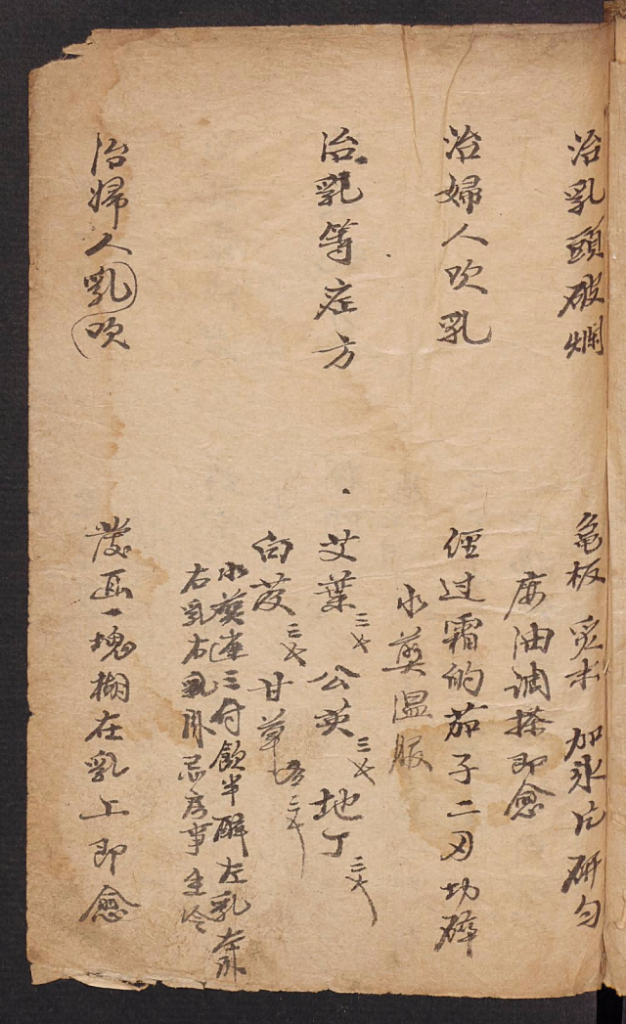 治乳頭破爛
龜板 炙末 加氷片研匀
麻油調搽即愈
治婦人吹乳
經过霜的茄子二刃切碎
水煎温服
治乳等症方
艾葉三戋 公英三戋 地丁三戋
白芨三戋 甘草
水煎連三付飲半醉左乳左卧
右乳右卧忌房事生冷
治婦人乳吹
一塊糊在乳上即愈